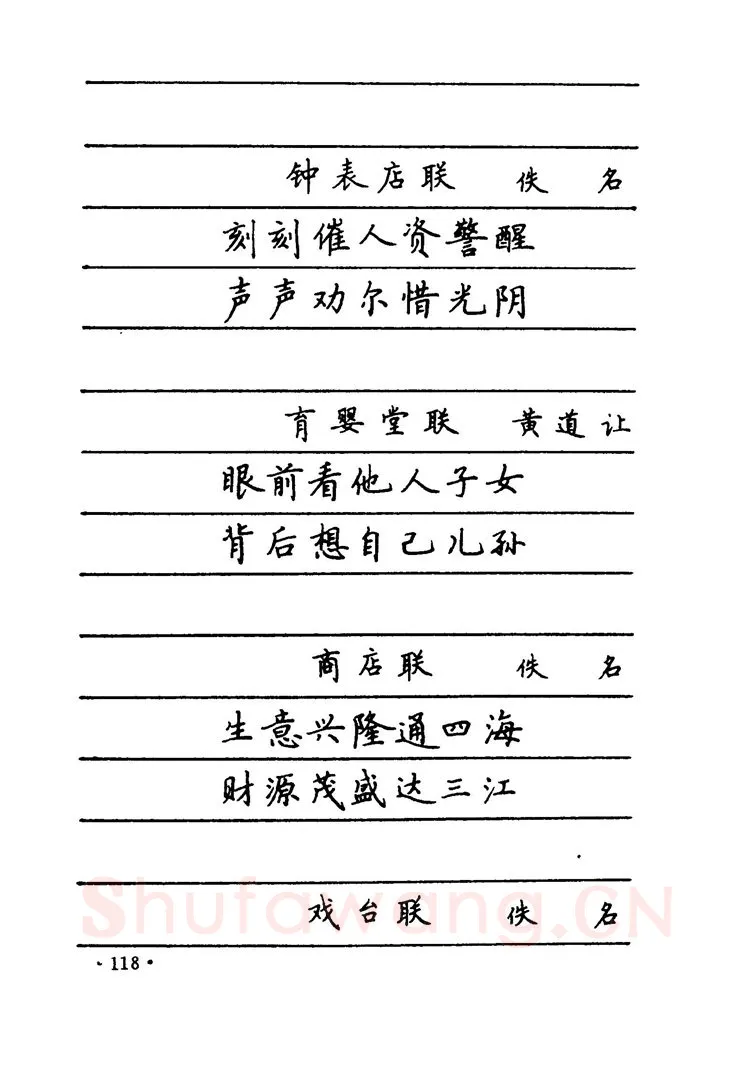 钟表店联 佚 名
刻刻催人资警醒
声声劝尔惜光阴
育婴堂联 黄道让
眼前看他人子女
背后想自己儿孙
商店联 佚 名
生意兴隆通四海
财源茂盛达三江
戏台联 佚 名
Shufawang.CN
·118·